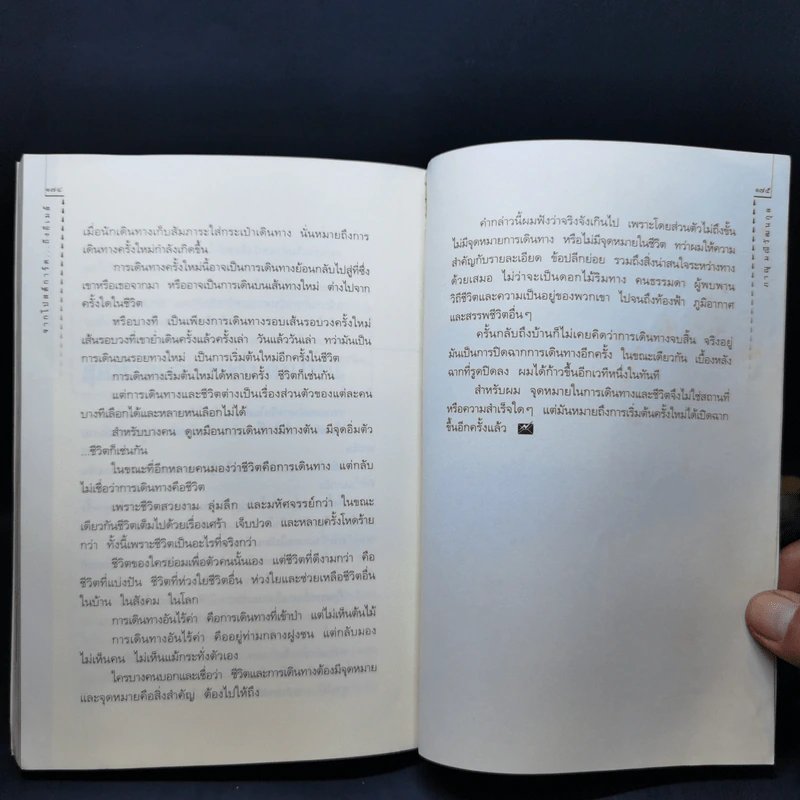 ๑๗๔
จากโปสต์การ์ด...ถึงอีเมล์
เมื่อนักเดินทางเก็บสัมภาระใส่กระเป๋าเดินทาง นั่นหมายถึงการ
เดินทางครั้งใหม่กำลังเกิดขึ้น
การเดินทางครั้งใหม่นี้อาจเป็นการเดินทางย้อนกลับไปสู่ที่ซึ่ง
เขาหรือเธอจากมา หรืออาจเป็นการเดินบนเส้นทางใหม่ ต่างไปจาก
ครั้งใดในชีวิต
หรือบางที เป็นเพียงการเดินทางรอบเส้นรอบวงครั้งใหม่
เส้นรอบวงที่เขาย่ำเดินครั้งแล้วครั้งเล่า วันแล้ววันเล่า ทว่ามันเป็น
การเดินบนรอยทางใหม่ เป็นการเริ่มต้นใหม่อีกครั้งในชีวิต
การเดินทางเริ่มต้นใหม่ได้หลายครั้ง ชีวิตก็เช่นกัน
แต่การเดินทางและชีวิตต่างเป็นเรื่องส่วนตัวของแต่ละคน
บางทีเลือกได้และหลายหนเลือกไม่ได้
สำหรับบางคน ดูเหมือนการเดินทางมีทางตัน มีจุดอิ่มตัว
...ชีวิตก็เช่นกัน
ในขณะที่อีกหลายคนมองว่าชีวิตคือการเดินทาง แต่กลับ
ไม่เชื่อว่าการเดินทางคือชีวิต
เพราะชีวิตสวยงาม ลุ่มลึก และมหัศจรรย์กว่า ในขณะ
เดียวกันชีวิตเต็มไปด้วยเรื่องเศร้า เจ็บปวด และหลายครั้งโหดร้าย
กว่า ทั้งนี้เพราะชีวิตเป็นอะไรที่จริงกว่า
ชีวิตของใครย่อมเพื่อตัวคนนั้นเอง แต่ชีวิตที่ดีงามกว่า คือ
ชีวิตที่แบ่งปัน ชีวิตที่ห่วงใยชีวิตอื่น ห่วงใยและช่วยเหลือชีวิตอื่น
ในบ้าน ในสังคม ในโลก
การเดินทางอันไร้ค่า คือการเดินทางที่เข้าป่า แต่ไม่เห็นต้นไม้
การเดินทางอันไร้ค่า คืออยู่ท่ามกลางฝูงชน แต่กลับมอง
ไม่เห็นคน ไม่เห็นแม้กระทั่งตัวเอง
ใครบางคนบอกและเชื่อว่า ชีวิตและการเดินทางต้องมีจุดหมาย
และจุดหมายคือสิ่งสำคัญ ต้องไปให้ถึง
๑๗๕
คำกล่าวนี้ผมฟังว่าจริงจังเกินไป เพราะโดยส่วนตัวไม่ถึงขั้น
ไม่มีจุดหมายการเดินทาง หรือไม่มีจุดหมายในชีวิต ทว่าผมให้ความ
สำคัญกับรายละเอียด ข้อปลีกย่อย รวมถึงสิ่งน่าสนใจระหว่างทาง
ด้วยเสมอ ไม่ว่าจะเป็นดอกไม้ริมทาง คนธรรมดา ผู้พบพาน
วิถีชีวิตและความเป็นอยู่ของพวกเขา ไปจนถึงท้องฟ้า ภูมิอากาศ
และสรรพชีวิตอื่นๆ
ครั้นกลับถึงบ้านก็ไม่เคยคิดว่าการเดินทางจบสิ้น จริงอยู่
มันเป็นการปิดฉากการเดินทางอีกครั้ง ในขณะเดียวกัน เบื้องหลัง
ฉากที่รูดปิดลง ผมได้ก้าวขึ้นอีกเวทีหนึ่งในทันที
สำหรับผม จุดหมายในการเดินทางและชีวิตจึงไม่ใช่สถานที่
หรือความสำเร็จใดๆ แต่มันหมายถึงการเริ่มต้นครั้งใหม่ได้เปิดฉาก
ขึ้นอีกครั้งแล้ว